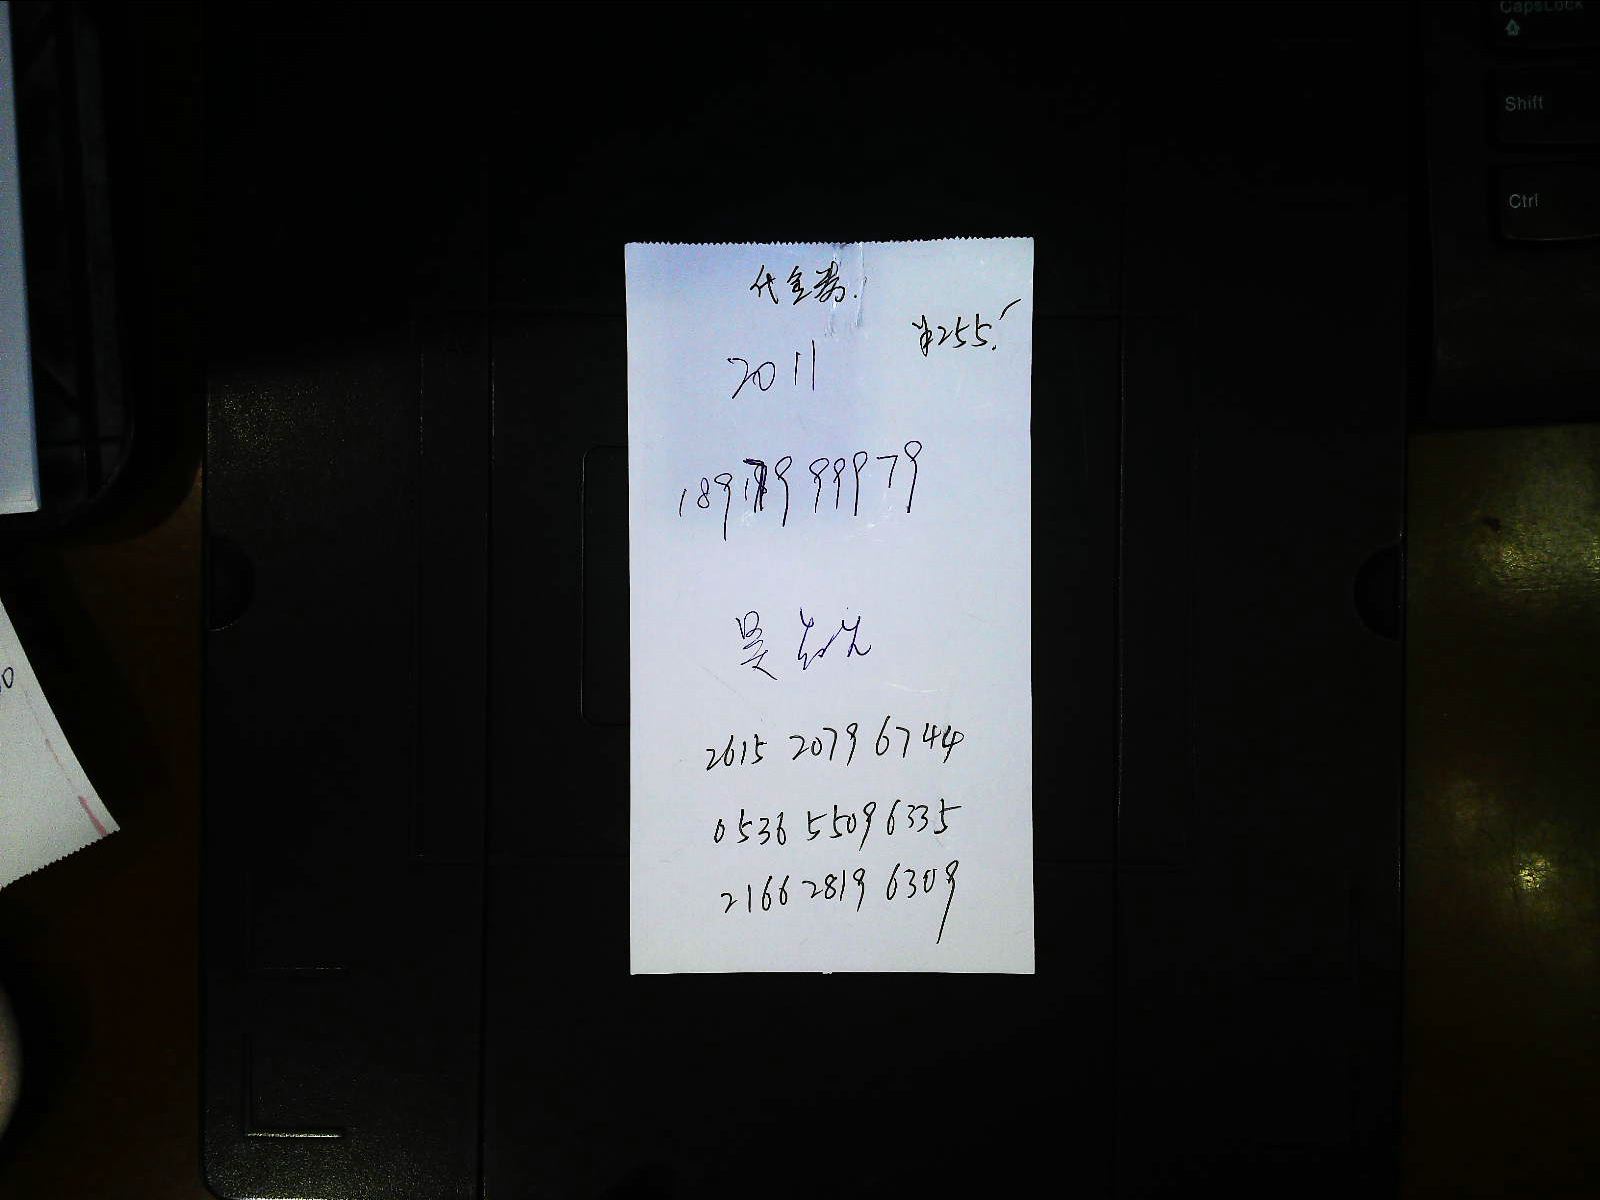 代金券.
¥255.
2011
2615 2079 6744
0536 5509 6335
2166 2819 6309
CapsLock
Shift
Ctrl